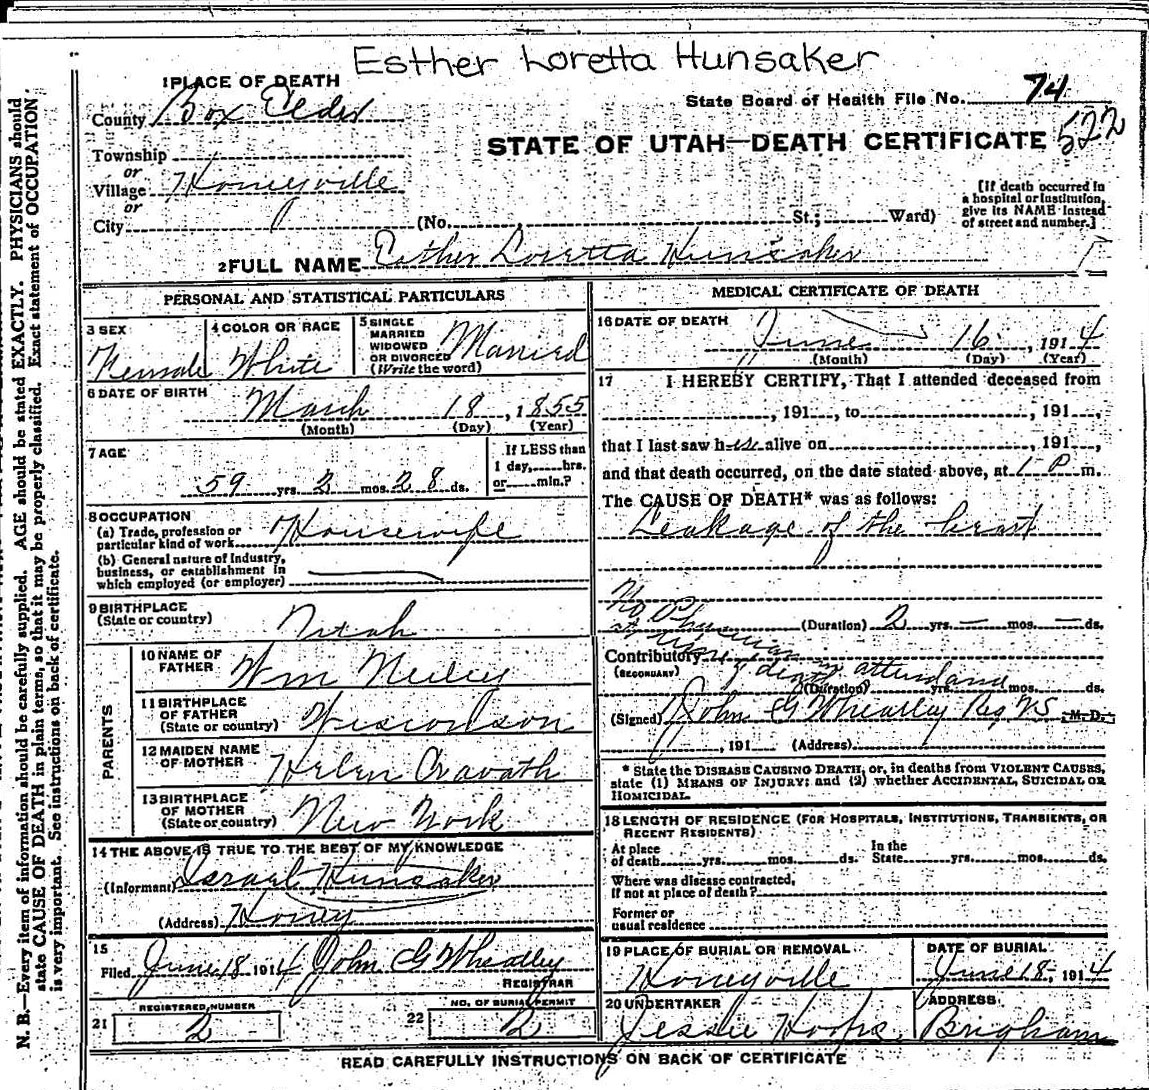 Esther Loretta Hunsaker
1 PLACE OF DEATH
County Box Elder
State Board of Health File No. 74
STATE OF UTAH—DEATH CERTIFICATE 522
Township
or
Village Honeyville
or
City (No. St.; Ward)
[If death occurred in
a hospital or institution,
give its NAME instead
of street and number.]
2 FULL NAME Esther Loretta Hunsaker
PERSONAL AND STATISTICAL PARTICULARS
3 SEX
Female
4 COLOR OR RACE
White
5 SINGLE
MARRIED
WIDOWED
OR DIVORCED
(Write the word)
Married
6 DATE OF BIRTH
March 18, 1855
(Month) (Day) (Year)
7 AGE
59 yrs. 2 mos. 28 ds.
If LESS than
1 day, hrs.
or min.?
8 OCCUPATION
(a) Trade, profession or
particular kind of work Housewife
(b) General nature of industry,
business, or establishment in
which employed (or employer)
9 BIRTHPLACE
(State or country)
Utah
PARENTS
10 NAME OF
FATHER
Wm Neeley
11 BIRTHPLACE
OF FATHER
(State or country)
12 MAIDEN NAME
OF MOTHER
Helen Cravath
13 BIRTHPLACE
OF MOTHER
(State or country)
New York
14 THE ABOVE IS TRUE TO THE BEST OF MY KNOWLEDGE
(Informant) Israel Hunsaker
(Address) Honey
15
Filed June 18 1914 John G Wheatley
REGISTRAR
21 REGISTERED NUMBER
2
22 NO. OF BURIAL PERMIT
2
MEDICAL CERTIFICATE OF DEATH
16 DATE OF DEATH
June 16, 1914
(Month) (Day) (Year)
17 I HEREBY CERTIFY, That I attended deceased from
, 191 , to , 191 ,
that I last saw her alive on , 191 ,
and that death occurred, on the date stated above, at 1 P m.
The CAUSE OF DEATH* was as follows:
Leakage of the heart
No Physician
at time of death in attendance
(Duration) 2 yrs. — mos. — ds.
Contributory
(SECONDARY)
(Duration) yrs. mos. ds.
(Signed) John G Wheatley Reg VS, M. D.
, 191 (Address)
* State the DISEASE CAUSING DEATH, or, in deaths from VIOLENT CAUSES,
state (1) MEANS OF INJURY; and (2) whether ACCIDENTAL, SUICIDAL OR
HOMICIDAL.
18 LENGTH OF RESIDENCE (FOR HOSPITALS, INSTITUTIONS, TRANSIENTS, OR
RECENT RESIDENTS)
At place
of death yrs. mos. ds.
In the
State yrs. mos. ds.
Where was disease contracted,
If not at place of death?
Former or
usual residence
19 PLACE OF BURIAL OR REMOVAL
Honeyville
DATE OF BURIAL
June 18, 1914
20 UNDERTAKER
ADDRESS
Brigham
READ CAREFULLY INSTRUCTIONS ON BACK OF CERTIFICATE
N. B.—Every item of information should be carefully supplied. AGE should be stated EXACTLY. PHYSICIANS should
state CAUSE OF DEATH in plain terms, so that it may be properly classified. Exact statement of OCCUPATION
is very important. See instructions on back of certificate.